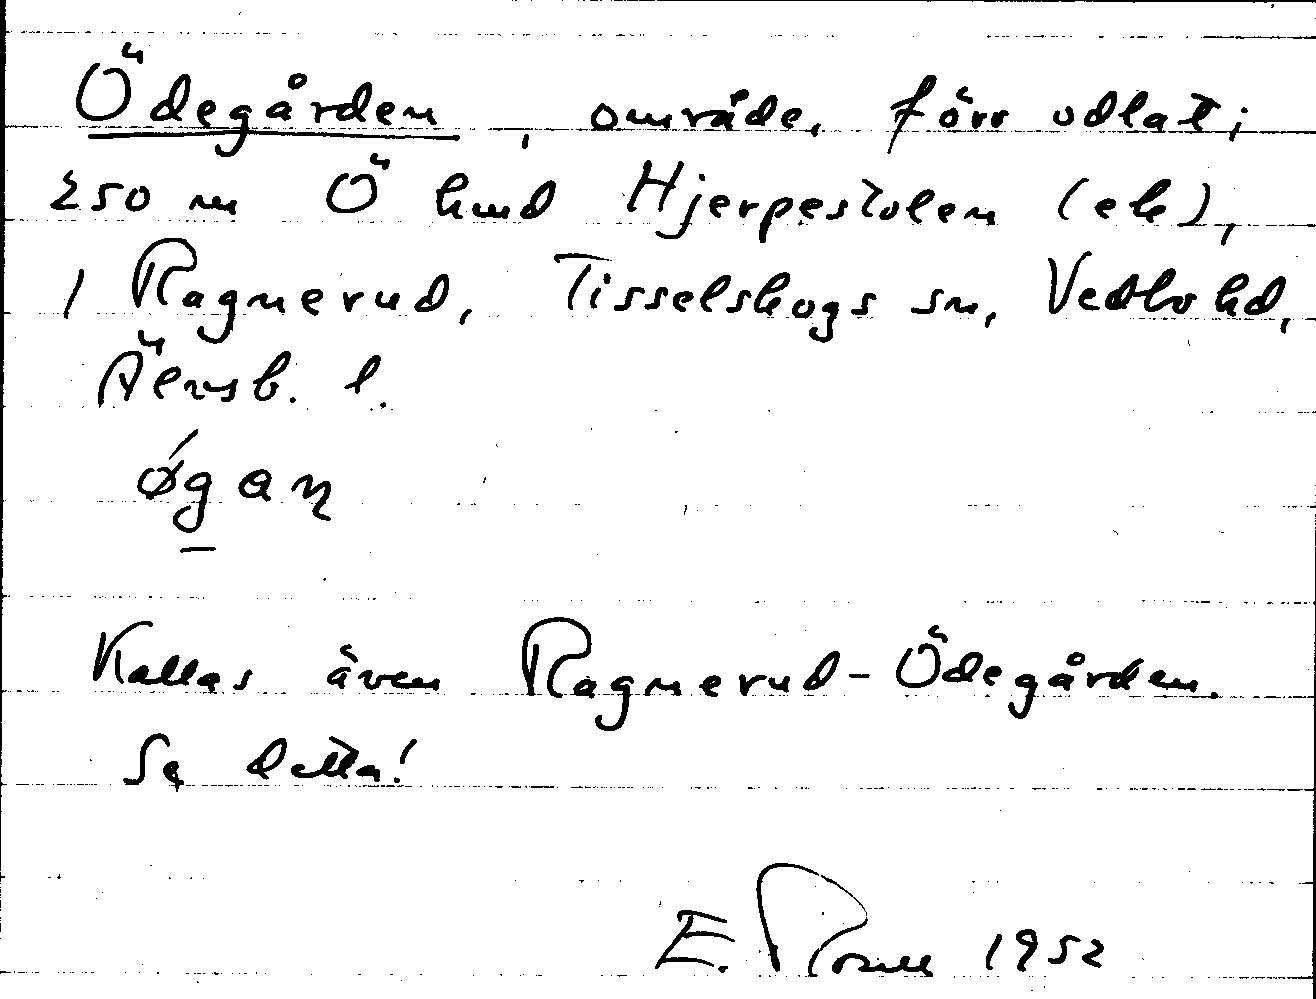 Ödegården, område, förr odlat;
250 m Ö hmd Hjerpestolen (ek),
i Ragnerud, Tisselskogs sn, Vedbo hd,
Älvsb. l.
øgan
Kallas även Ragnerud-Ödegården.
Se detta!
E. 1952